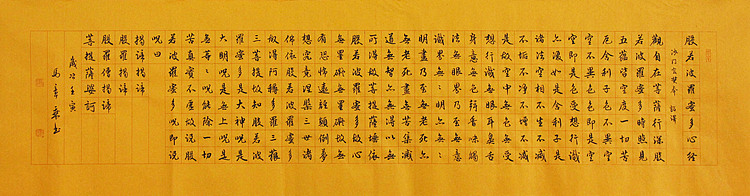 般若波羅蜜多心經
沙門玄奘奉 詔譯
觀自在菩薩行深般
若波羅蜜多時照見
五蘊皆空度一切苦
厄舍利子色不異空
空不異色色即是空
空即是色受想行識
亦復如是舍利子是
諸法空相不生不滅
不垢不淨不增不減
是故空中無色無受
想行識無眼耳鼻舌
身意無色聲香味觸
法無眼界乃至無意
識界無無明亦無無
明盡乃至無老死亦
無老死盡無苦集滅
道無智亦無得以無
所得故菩提薩埵依
般若波羅蜜多故心
無罣礙無罣礙故無
有恐怖遠離顛倒夢
想究竟涅槃三世諸
佛依般若波羅蜜多
故得阿耨多羅三藐
三菩提故知般若波
羅蜜多是大神咒是
大明咒是無上咒是
無等等咒能除一切
苦真實不虛故說般
若波羅蜜多咒即說
咒曰
揭諦揭諦
般羅揭諦
般羅僧揭諦
菩提薩婆訶
歲次壬寅
馬青 書